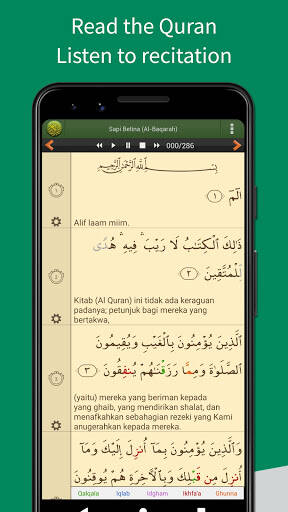 Read the Quran
Listen to recitation
Sapi Betina (Al-Baqarah)
000/286
بِسْمِ اللَّهِ الرَّحْمَٰنِ الرَّحِيمِ
١
الٓمٓ ﴿١﴾
Alif laam miim.
ذَٰلِكَ ٱلْكِتَـٰبُ لَا رَيْبَ ۛ فِيهِ ۛ هُدًى
٢
لِّلْمُتَّقِينَ ﴿٢﴾
Kitab (Al Quran) ini tidak ada keraguan
padanya; petunjuk bagi mereka yang
bertakwa,
ٱلَّذِينَ يُؤْمِنُونَ بِٱلْغَيْبِ وَيُقِيمُونَ
ٱلصَّلَوٰةَ وَمِمَّا رَزَقْنَـٰهُمْ يُنفِقُونَ ﴿٣﴾
(yaitu) mereka yang beriman kepada
yang ghaib, yang mendirikan shalat, dan
menafkahkan sebahagian rezeki yang Kami
anugerahkan kepada mereka.
وَٱلَّذِينَ يُؤْمِنُونَ بِمَآ أُنزِلَ إِلَيْكَ وَمَآ
أُنزِلَ مِن قَبْلِكَ وَبِٱلْـَٔاخِرَةِ هُمْ يُوقِنُونَ
Qalqala Iqlab Idgham Ikhfa'a Ghunna